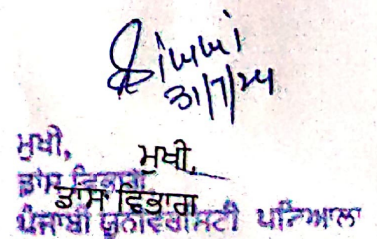 Simmi
31/7/24
ਮੁਖੀ,
ਮੁਖੀ,
ਡਾਂਸ ਵਿਭਾਗ
ਡਾਂਸ ਵਿਭਾਗ
ਪੰਜਾਬੀ ਯੂਨੀਵਰਸਿਟੀ ਪਟਿਆਲਾ